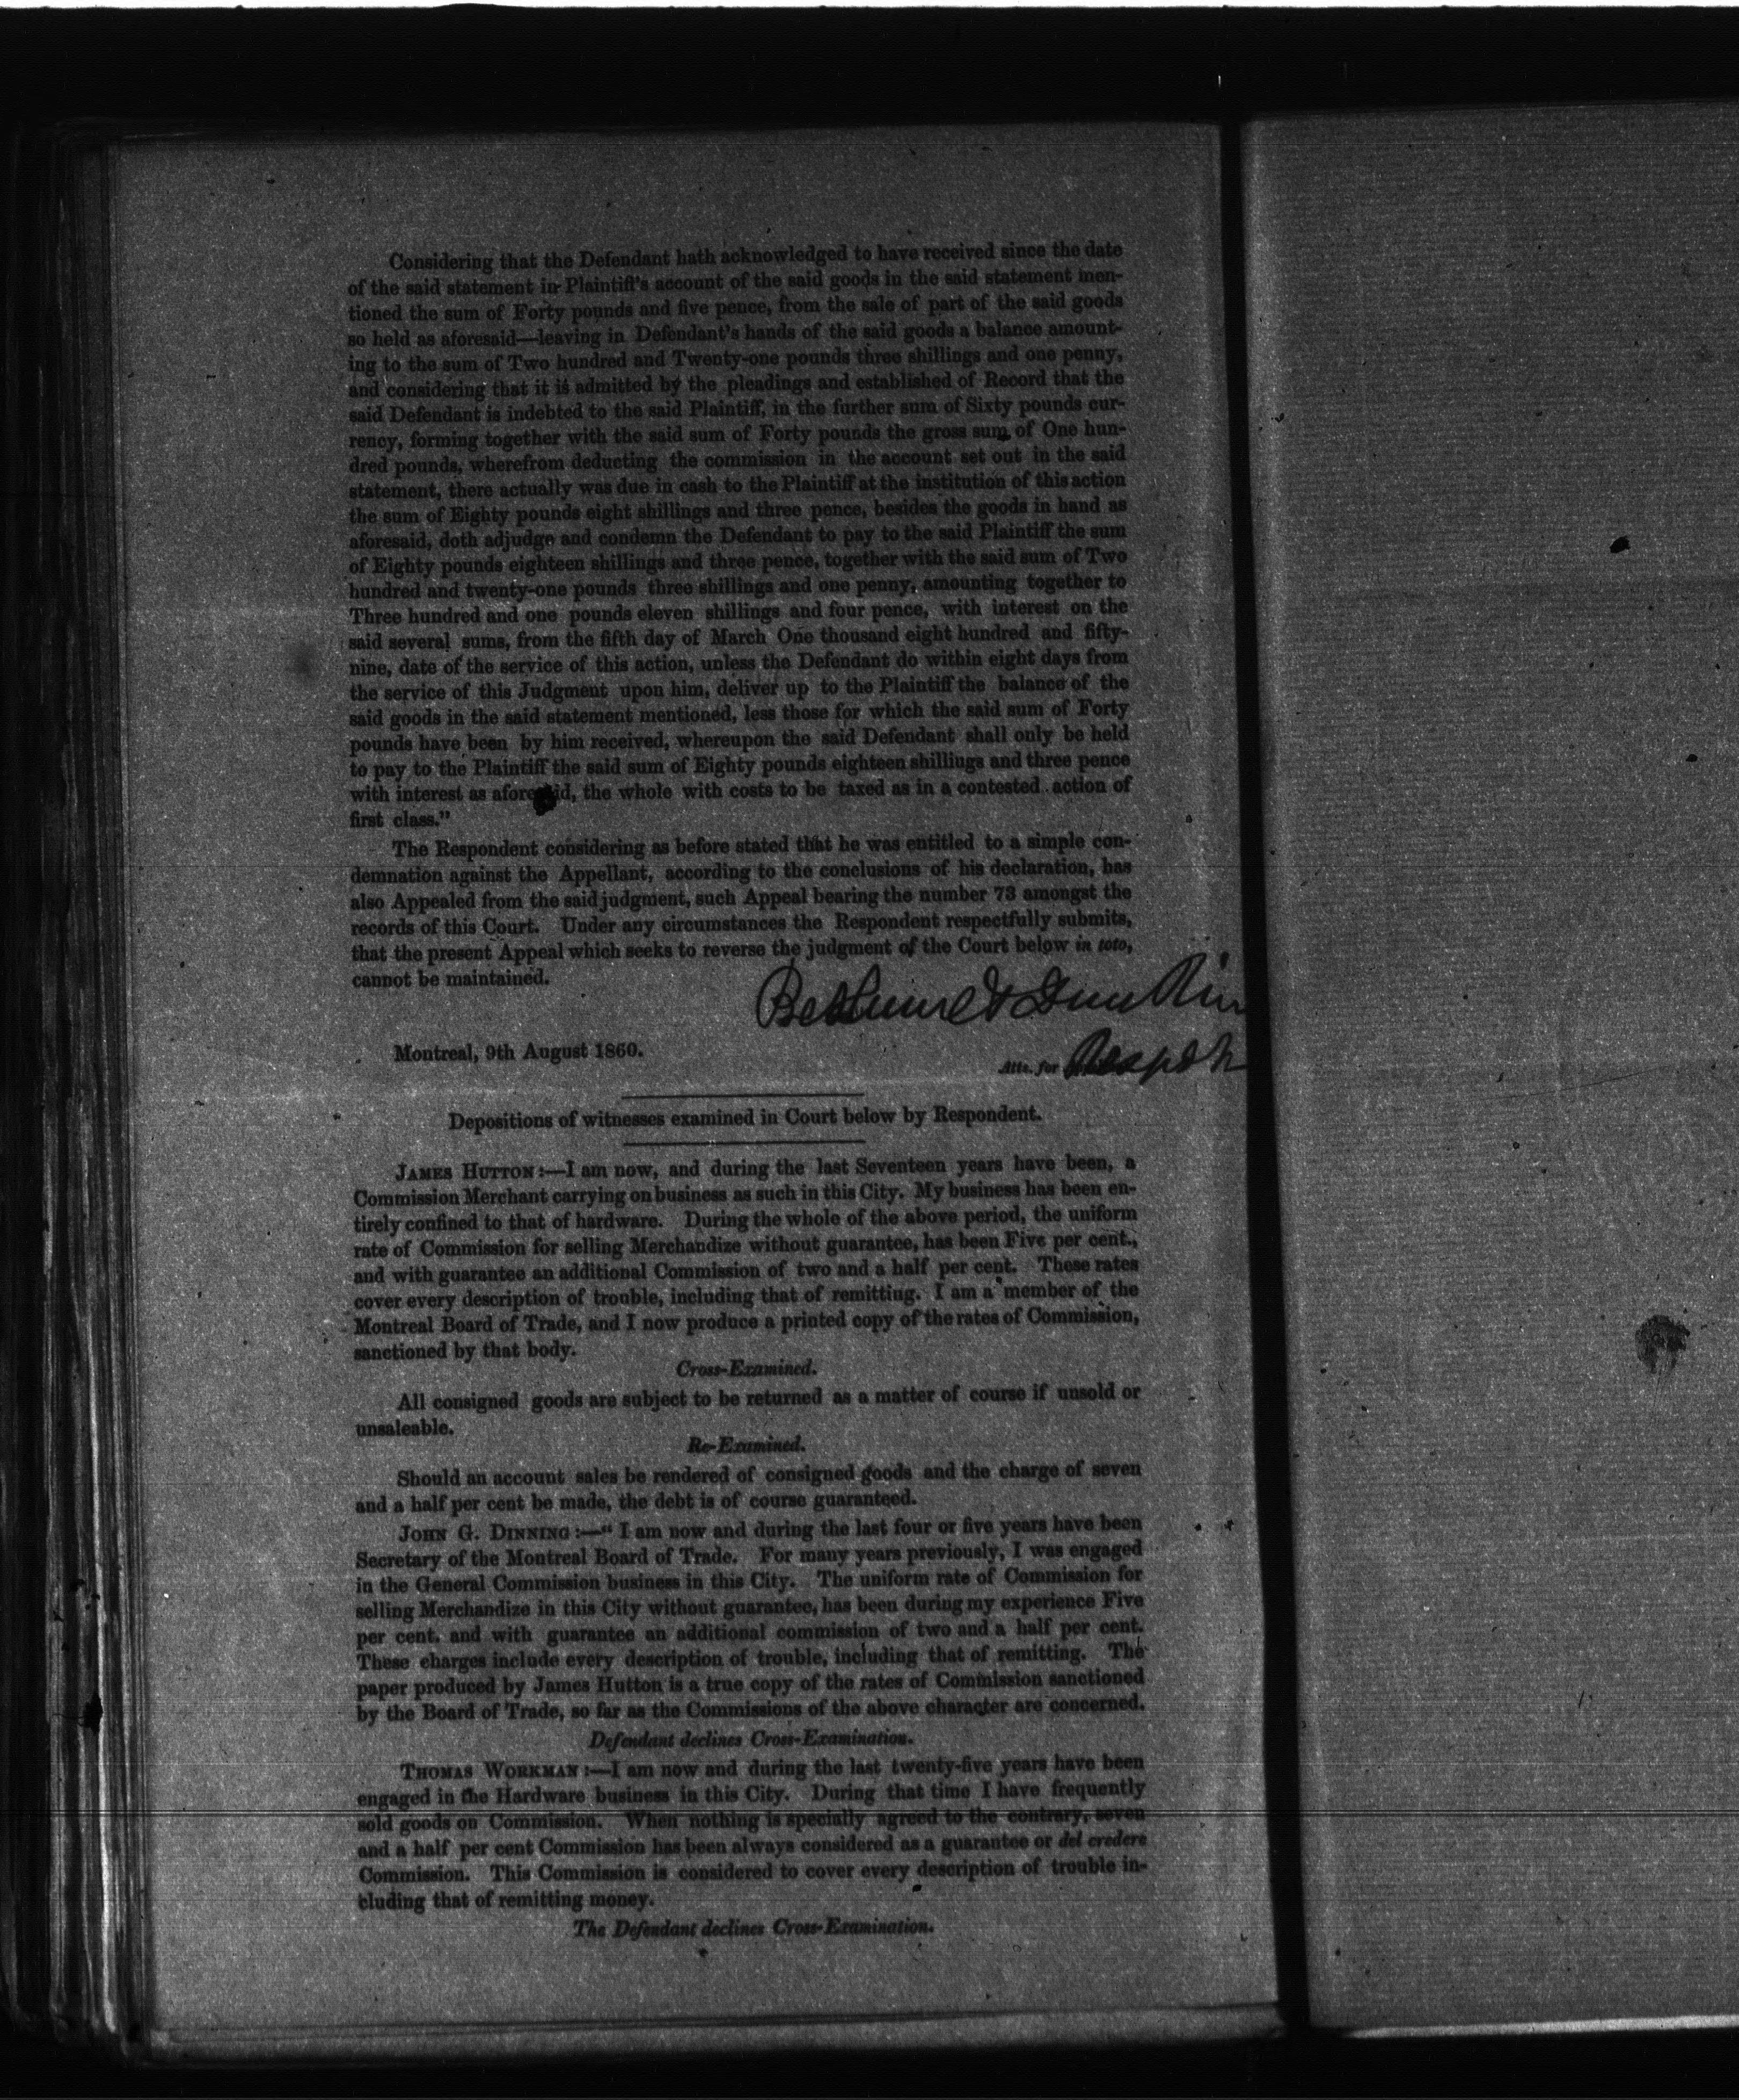 Considering that the Defendant hath acknowledged to have received since the date
of the said statement in Plaintiff's account of the said goods in the said statement men-
tioned the sum of Forty pounds and five pence, from the sale of part of the said goods
so held as aforesaid—leaving in Defendant's hands of the said goods a balance amount-
ing to the sum of Two hundred and Twenty-one pounds three shillings and one penny,
and considering that it is admitted by the pleadings and established of Record that the
said Defendant is indebted to the said Plaintiff, in the further sum of Sixty pounds cur-
rency, forming together with the said sum of Forty pounds the gross sum of One hun-
dred pounds, wherefrom deducting the commission in the account set out in the said
statement, there actually was due in cash to the Plaintiff at the institution of this action
the sum of Eighty pounds eight shillings and three pence, besides the goods in hand as
aforesaid, doth adjudge and condemn the Defendant to pay to the said Plaintiff the sum
of Eighty pounds eighteen shillings and three pence, together with the said sum of Two
hundred and twenty-one pounds three shillings and one penny, amounting together to
Three hundred and one pounds eleven shillings and four pence, with interest on the
said several sums, from the fifth day of March One thousand eight hundred and fifty-
nine, date of the service of this action, unless the Defendant do within eight days from
the service of this Judgment upon him, deliver up to the Plaintiff the balance of the
said goods in the said statement mentioned, less those for which the said sum of Forty
pounds have been by him received, whereupon the said Defendant shall only be held
to pay to the Plaintiff the said sum of Eighty pounds eighteen shillings and three pence
with interest as aforesaid, the whole with costs to be taxed as in a contested action of
first class."
The Respondent considering as before stated that he was entitled to a simple con-
demnation against the Appellant, according to the conclusions of his declaration, has
also Appealed from the said judgment, such Appeal bearing the number 73 amongst the
records of this Court. Under any circumstances the Respondent respectfully submits,
that the present Appeal which seeks to reverse the judgment of the Court below in toto,
cannot be maintained.
Bethune & Dunkin
Montreal, 9th August 1860.
Atts. for Respdt
Depositions of witnesses examined in Court below by Respondent.
JAMES HUTTON:—I am now, and during the last Seventeen years have been, a
Commission Merchant carrying on business as such in this City. My business has been en-
tirely confined to that of hardware. During the whole of the above period, the uniform
rate of Commission for selling Merchandize without guarantee, has been Five per cent.,
and with guarantee an additional Commission of two and a half per cent. These rates
cover every description of trouble, including that of remitting. I am a member of the
Montreal Board of Trade, and I now produce a printed copy of the rates of Commission,
sanctioned by that body.
Cross-Examined.
All consigned goods are subject to be returned as a matter of course if unsold or
unsaleable.
Re-Examined.
Should an account sales be rendered of consigned goods and the charge of seven
and a half per cent be made, the debt is of course guaranteed.
JOHN G. DINNING:—"I am now and during the last four or five years have been
Secretary of the Montreal Board of Trade. For many years previously, I was engaged
in the General Commission business in this City. The uniform rate of Commission for
selling Merchandize in this City without guarantee, has been during my experience Five
per cent. and with guarantee an additional commission of two and a half per cent.
These charges include every description of trouble, including that of remitting. The
paper produced by James Hutton is a true copy of the rates of Commission sanctioned
by the Board of Trade, so far as the Commissions of the above character are concerned.
Defendant declines Cross-Examination.
THOMAS WORKMAN:—I am now and during the last twenty-five years have been
engaged in the Hardware business in this City. During that time I have frequently
sold goods on Commission. When nothing is specially agreed to the contrary, seven
and a half per cent Commission has been always considered as a guarantee or del credere
Commission. This Commission is considered to cover every description of trouble in-
cluding that of remitting money.
The Defendant declines Cross-Examination.